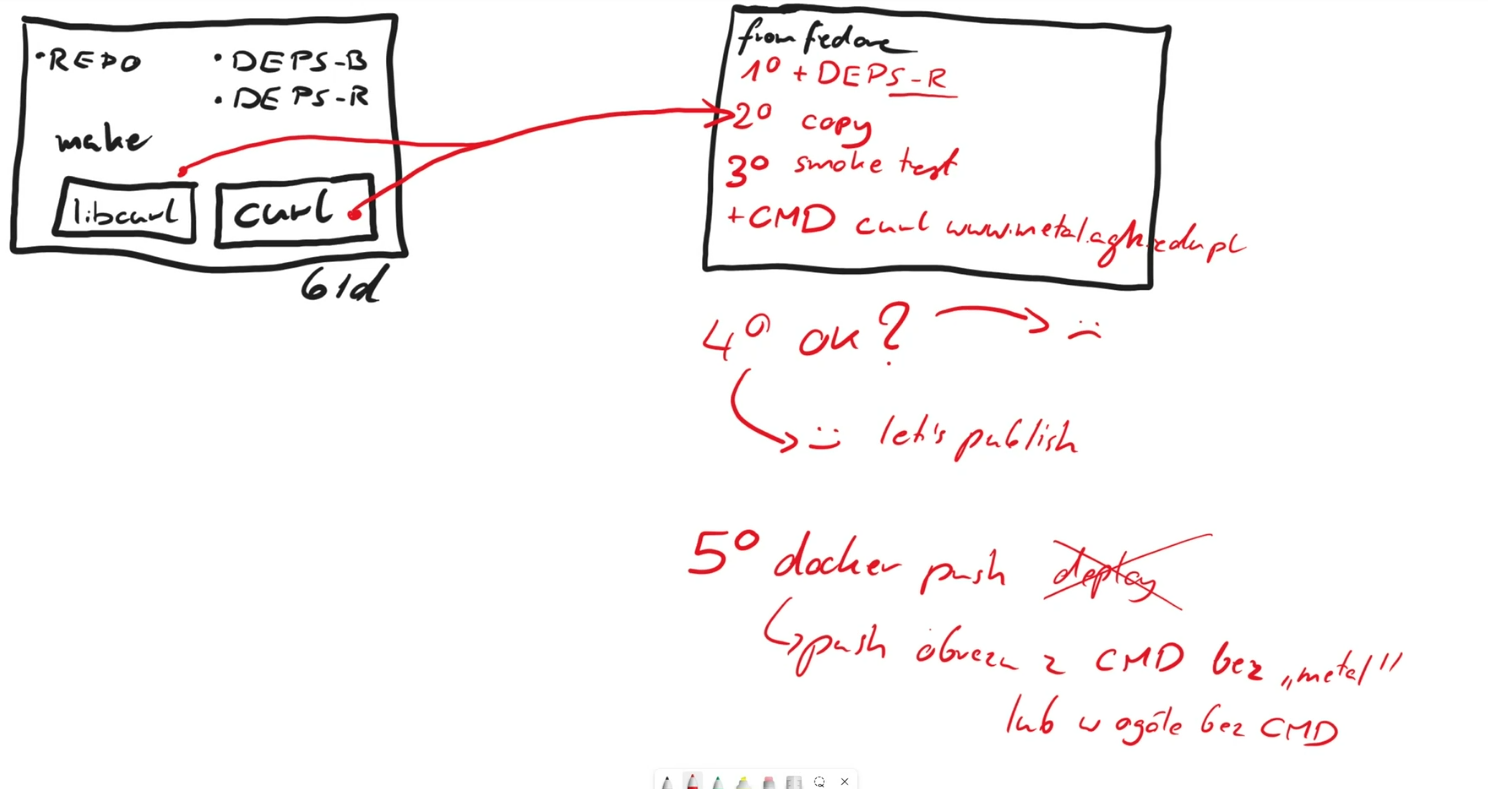 • REPO
• DEPS-B
• DEPS-R
make
libcurl
curl
bld
from fedora
1° + DEPS-R
2° copy
3° smoke test
+ CMD curl www.metal.agh.edu.pl
4° ok?
:(
:) let's publish
5° docker push deploy
push obrazu z CMD bez „metal”
lub w ogóle bez CMD